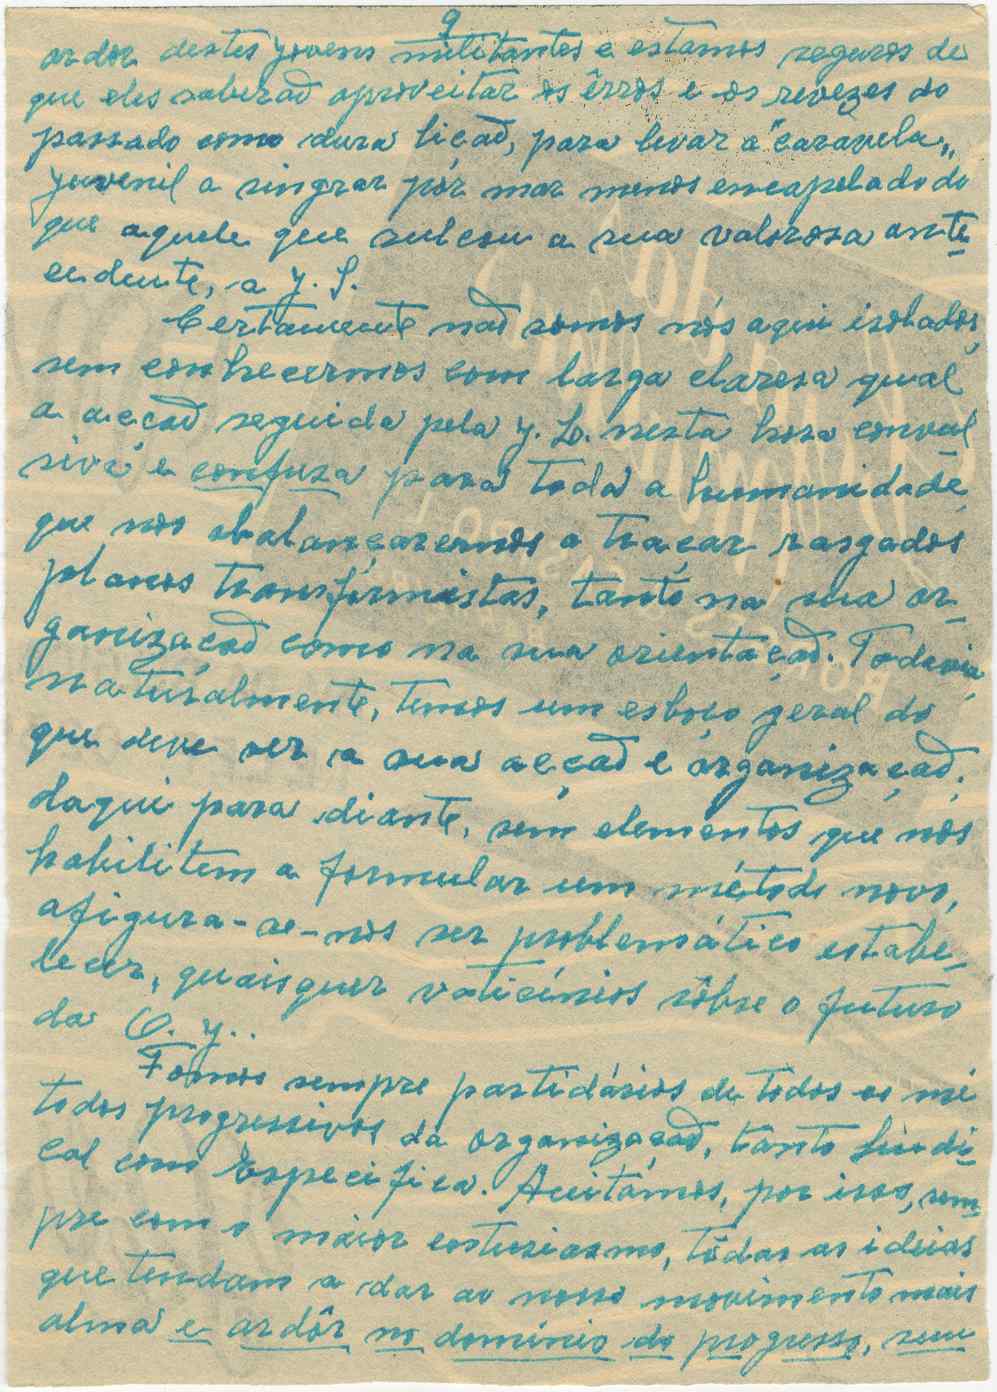 9
ardor destes jovens militantes e estamos seguros de
que eles saberaõ aproveitar os êrros e os revezes do
passado como dura liçaõ, para levar a "caravela„
juvenil a singrar pôr mar menos encapelado do
que aquele que sulcou a sua valorosa ante
cedente, a J. S.
Certamente naõ somos nós aqui isolados,
sem conhecermos com larga claresa qual
a acçaõ seguida pela J. L. nesta hora convul
siva e confuza para toda a humanidade,
que nos abalançaremos a traçar rasgados
planos transformistas, tanto na sua or-
ganizaçaõ como na sua orientaçaõ. Todavia,
naturalmente, temos um esboço geral do
que deve ser a sua acçaõ e organizaçaõ,
daqui para diante, sem elementos que nos
habilitem a formular um método novo,
afigura-se-nos ser problemático estabe-
lecer, quaisquer vaticínios sôbre o futuro
da O. J..
Fomos sempre partidários de todos os mé
todos progressivos da organizaçaõ, tanto Sindi-
cal com Especifica. Aceitámos, por isso, sem-
pre com o maior entusiasmo, tôdas as ideias
que tendam a dar ao nosso movimento mais
alma e ardôr no dominio do progresso, sem